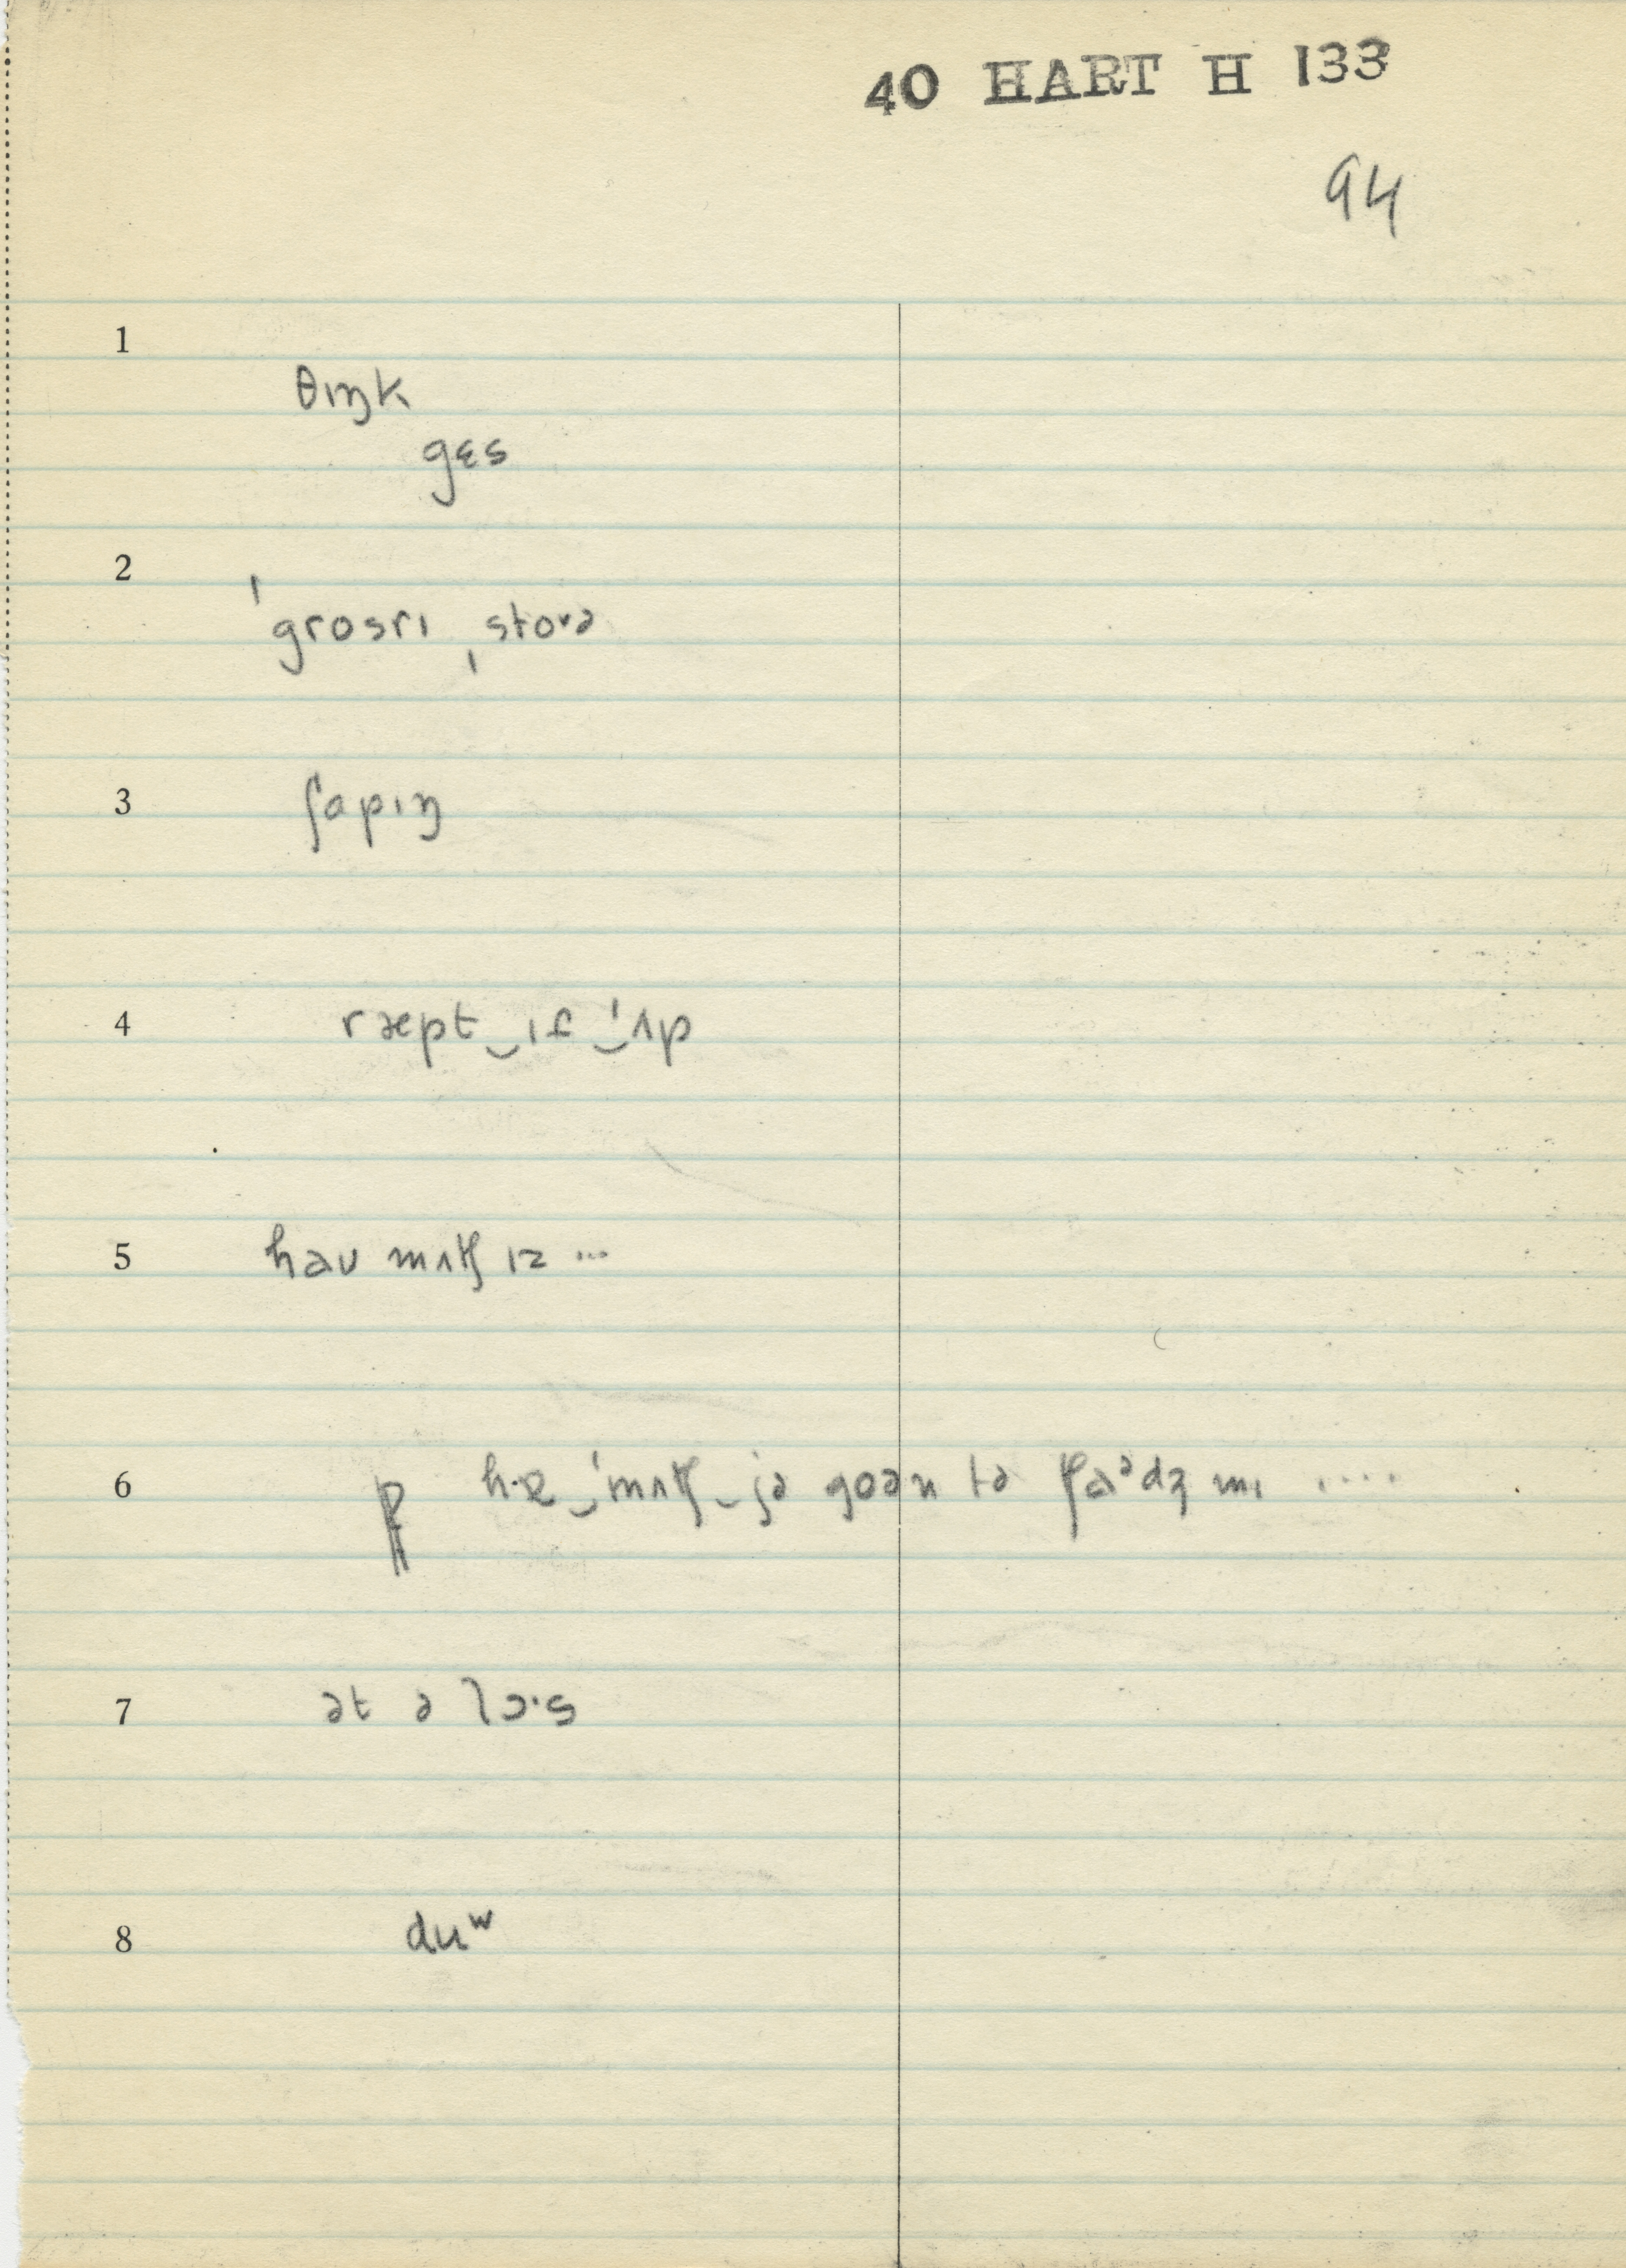 40 HART H 133
94
1
θɪŋk
gɛs
2
ˈgrosrɪ ˌstoᵛə
3
ʃɑpɪŋ
4
ræpt‿ɪt‿ˈʌp
5
haʊ mʌtʃ ɪz ...
6
‿ˈmʌtʃ‿jə goən tə tʃɑᵊdʒ mɪ ....
7
ət ə lɔ·s
8
duʷ